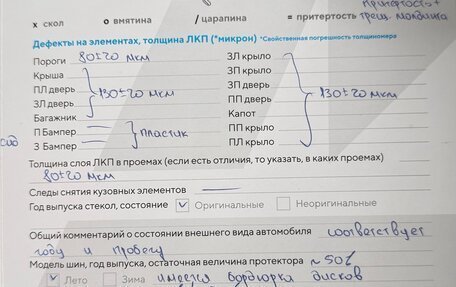 притертость +
х скол о вмятина / царапина = притертость трещ. молдинга
Дефекты на элементах, толщина ЛКП (*микрон) *Свойственная погрешность толщиномера
Пороги 80±20 мкм ЗЛ крыло
Крыша ЗП крыло
ПЛ дверь 130±20 мкм ЗП дверь
ЗЛ дверь ПП дверь 130±20 мкм
Багажник Капот
П Бампер пластик ПП крыло
З Бампер ПЛ крыло
Толщина слоя ЛКП в проемах (если есть отличия, то указать, в каких проемах)
80±20 мкм
Следы снятия кузовных элементов —
Год выпуска стекол, состояние ✓ Оригинальные Неоригинальные
Общий комментарий о состоянии внешнего вида автомобиля соответствует
году и пробегу
Модель шин, год выпуска, остаточная величина протектора ~ 50%
✓ Лето Зима имеется бордюрка дисков